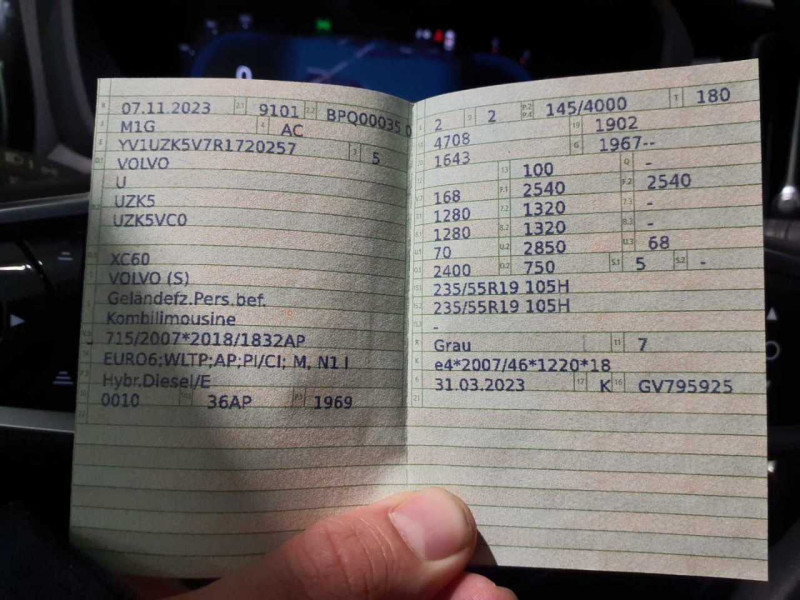 07.11.2023 9101 BPQ00035 0
M1G AC
YV1UZK5V7R1720257 5
VOLVO
U
UZK5
UZK5VC0
XC60
VOLVO (S)
Geländefz.Pers.bef.
Kombilimousine
715/2007*2018/1832AP
EURO6;WLTP;AP;PI/CI; M, N1 I
Hybr.Diesel/E
0010 36AP 1969
2 2 145/4000 180
4708 1902
1643 1967--
100 -
168 2540 2540
1280 1320 -
1280 1320 -
70 2850 68
2400 750 5 -
235/55R19 105H
235/55R19 105H
-
Grau 7
e4*2007/46*1220*18
31.03.2023 K GV795925